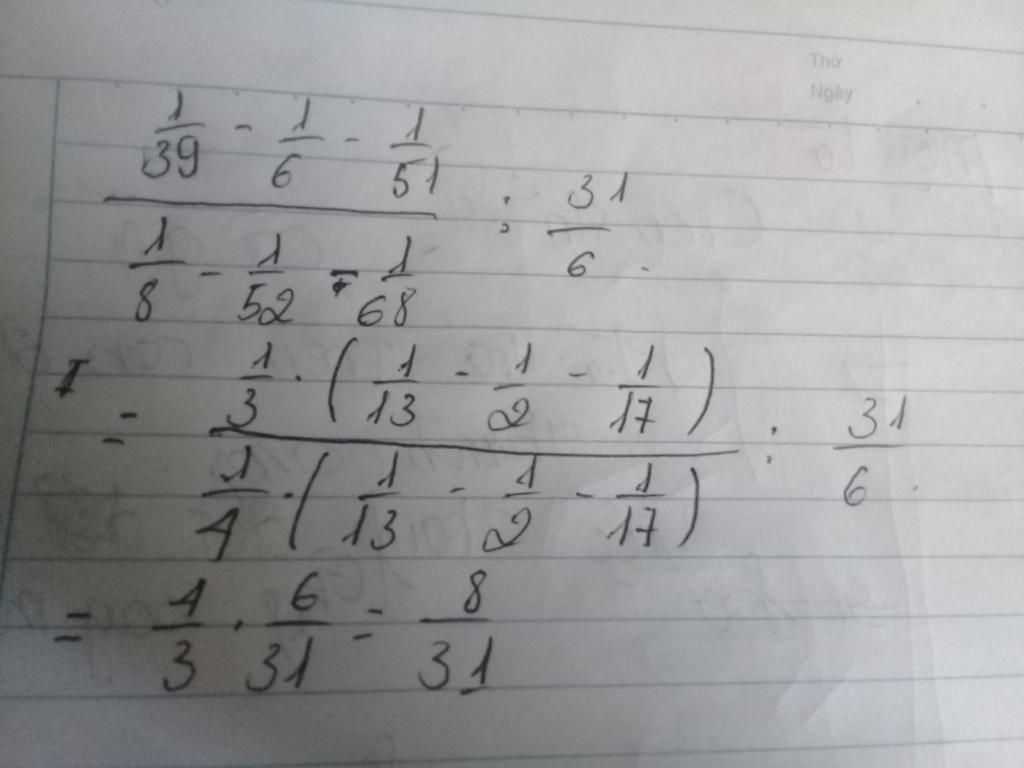 Thứ
Ngày
1/39 - 1/6 - 1/51
1/8 - 1/52 - 1/68
: 31/6 .
= 1/3 . ( 1/13 - 1/2 - 1/17 )
1/4 . ( 1/13 - 1/2 - 1/17 )
: 31/6 .
= 4/3 . 6/31 = 8/31